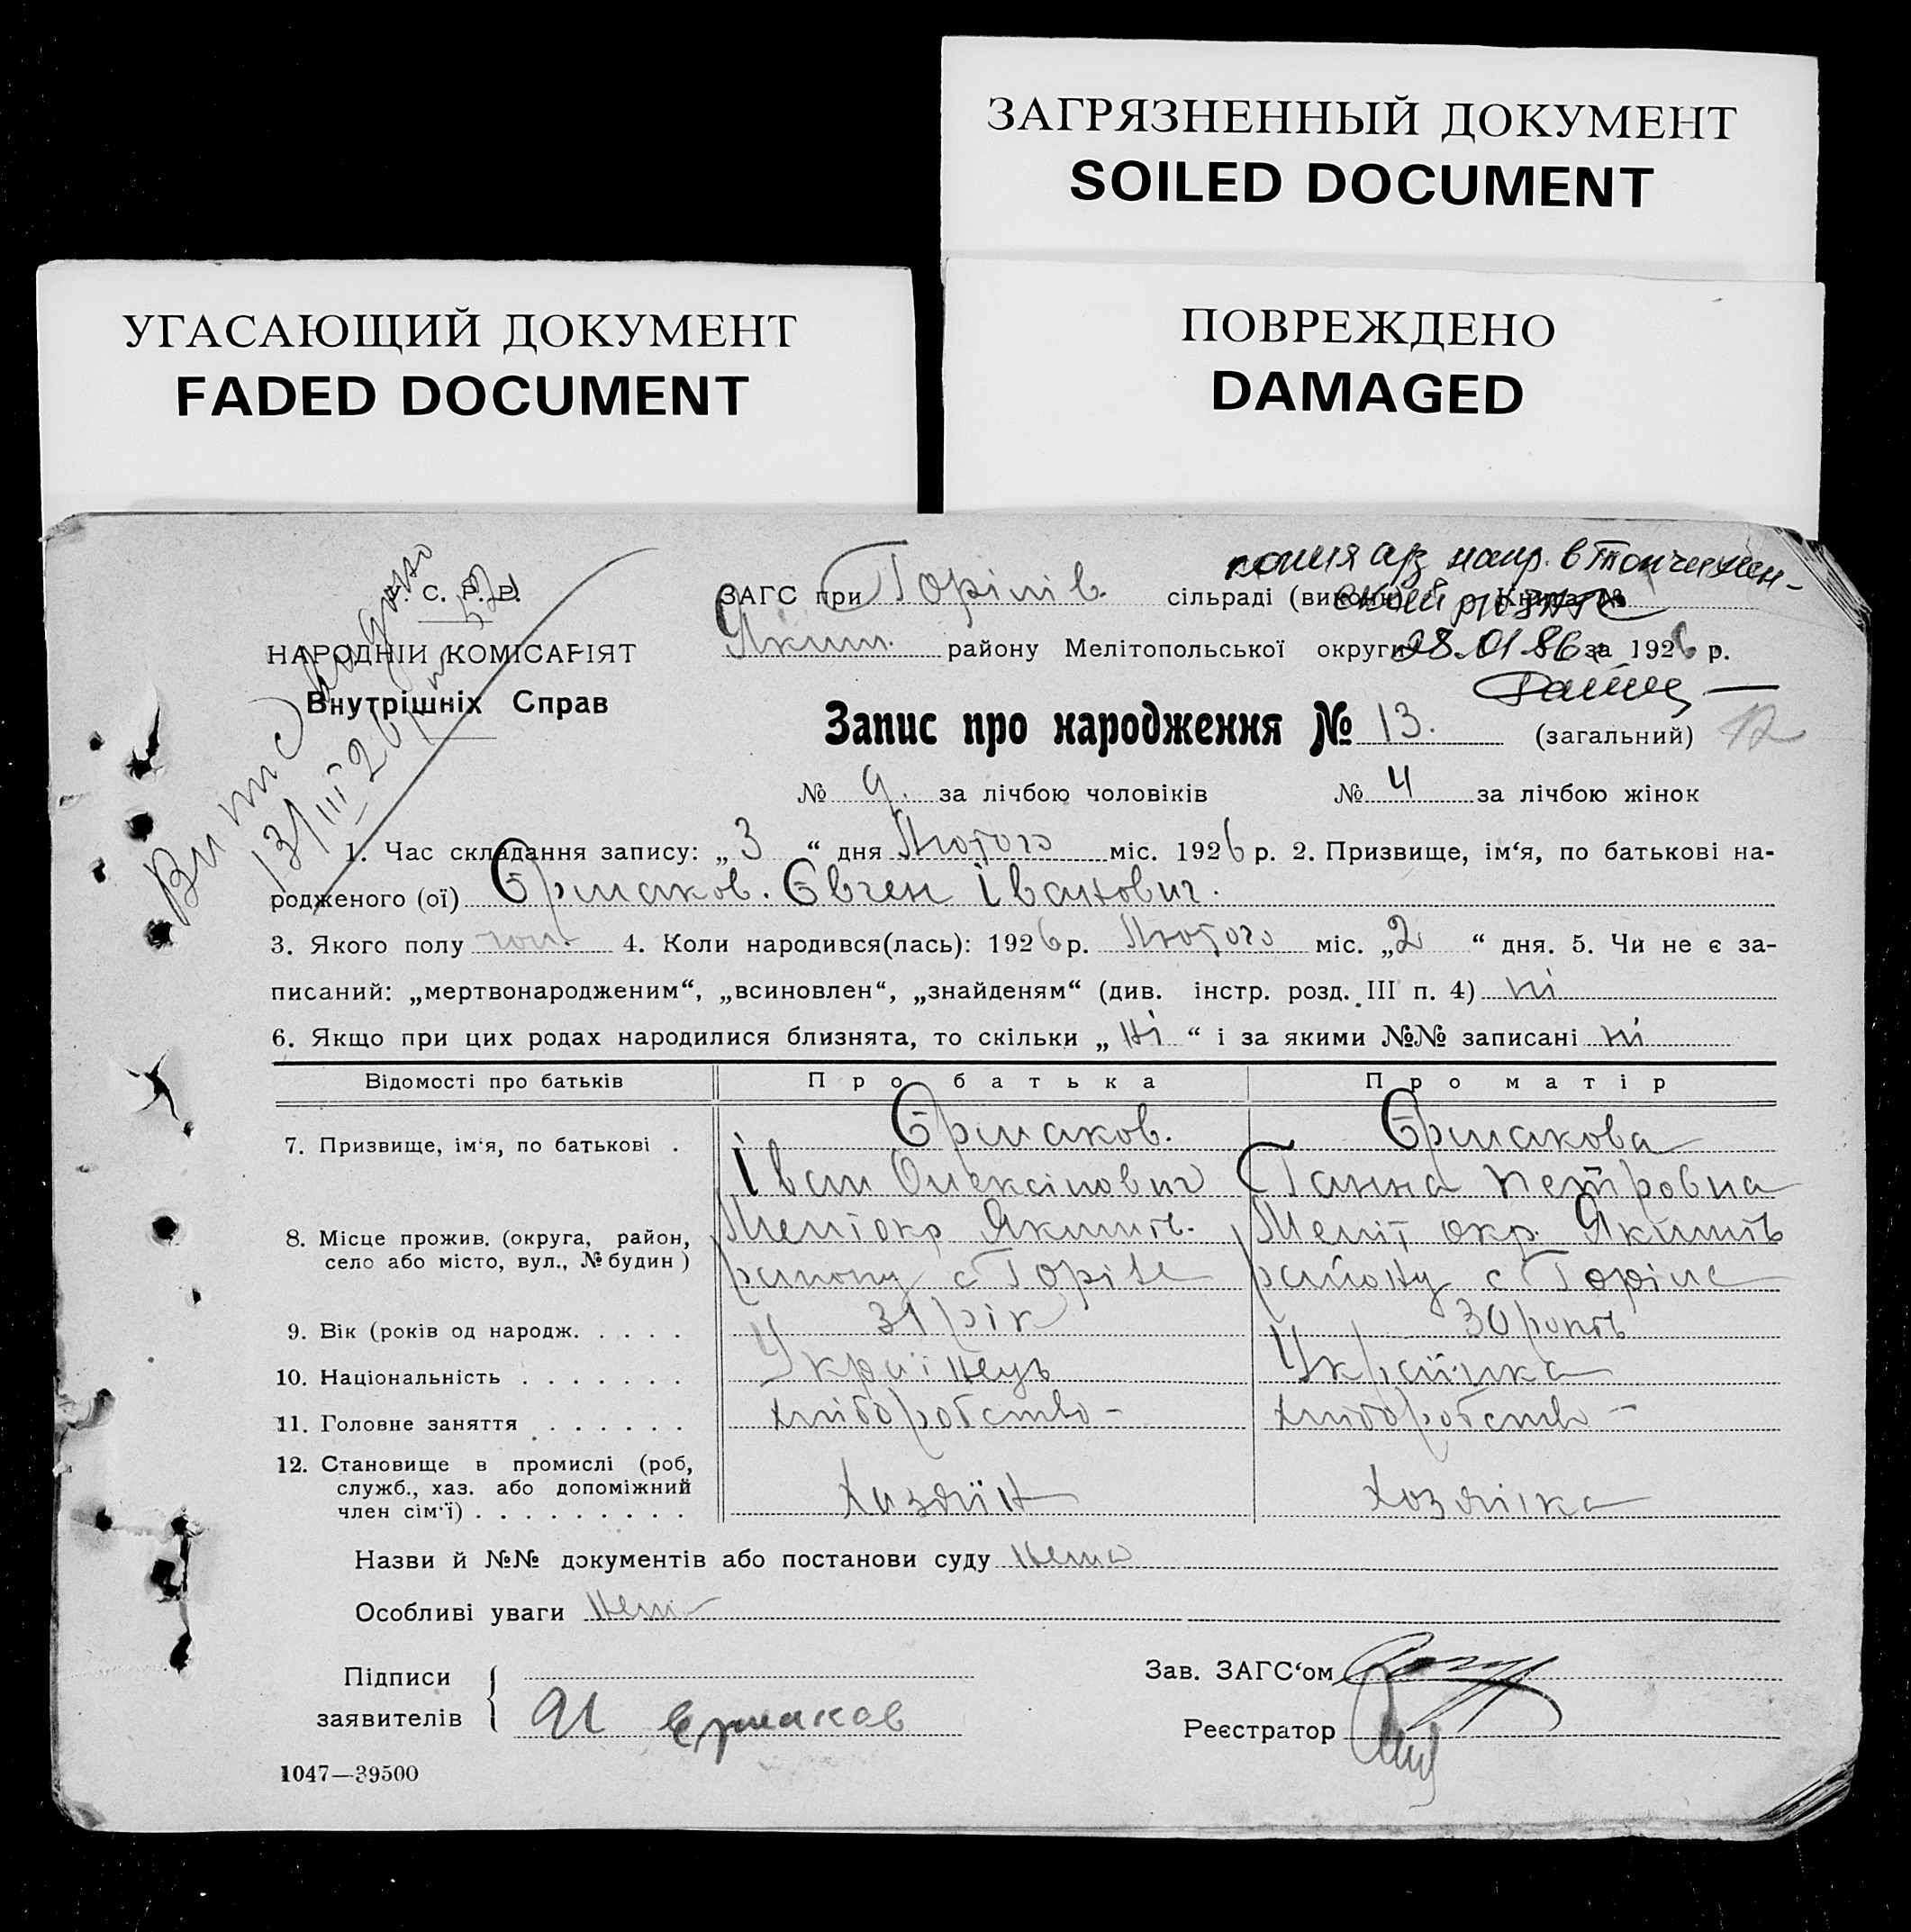 ЗАГРЯЗНЕННЫЙ ДОКУМЕНТ
SOILED DOCUMENT
УГАСАЮЩИЙ ДОКУМЕНТ
FADED DOCUMENT
ПОВРЕЖДЕНО
DAMAGED
У. С. Р. Р.
НАРОДНІЙ КОМІСАРІЯТ
Внутрішніх Справ
Витяс видано
13/III 26
копия аз напр. в
28.01.86
ЗАГС при Горілів. сільраді (викон Книга №
Яким. району Мелітопольської округи за 1926 р.
Запис про народження № 13. (загальний) 12
№ 9. за лічбою чоловіків № 4 за лічбою жінок
1. Час складання запису: „3“ дня Лютого міс. 1926 р. 2. Призвище, ім‘я, по батькові на-
родженого (ої) Єрмаков. Євген Іванович.
3. Якого полу чол. 4. Коли народився(лась): 1926 р. Лютого міс. „2“ дня. 5. Чи не є за-
писаний: „мертвонародженим“, „всиновлен“, „знайденям“ (див. інстр. розд. III п. 4) ні
6. Якщо при цих родах народилися близнята, то скільки „ні“ і за якими №№ записані ні
Відомості про батьків Про батька Про матір
7. Призвище, ім‘я, по батькові . Єрмаков. Єрмакова
Іван Олексійович Ганна Петровна
8. Місце прожив. (округа, район, Меліток Якимів. Меліт окр. Якимів
село або місто, вул., № будин) району с Горіле району с Горіле
9. Вік (років од народж. . . . . 31 рік 30 років
10. Національність . . . . . . . Українець Українка
11. Головне заняття . . . . . . хліборобство - хліборобство -
12. Становище в промислі (роб,
служб., хаз. або допоміжний
член сім‘ї) . . . . . . . . . Хазяїн Хозяйка
Назви й №№ документів або постанови суду Нема
Особливі уваги Нема
Підписи
заявителів Ермаков
Зав. ЗАГС‘ом
Реєстратор
1047—39500